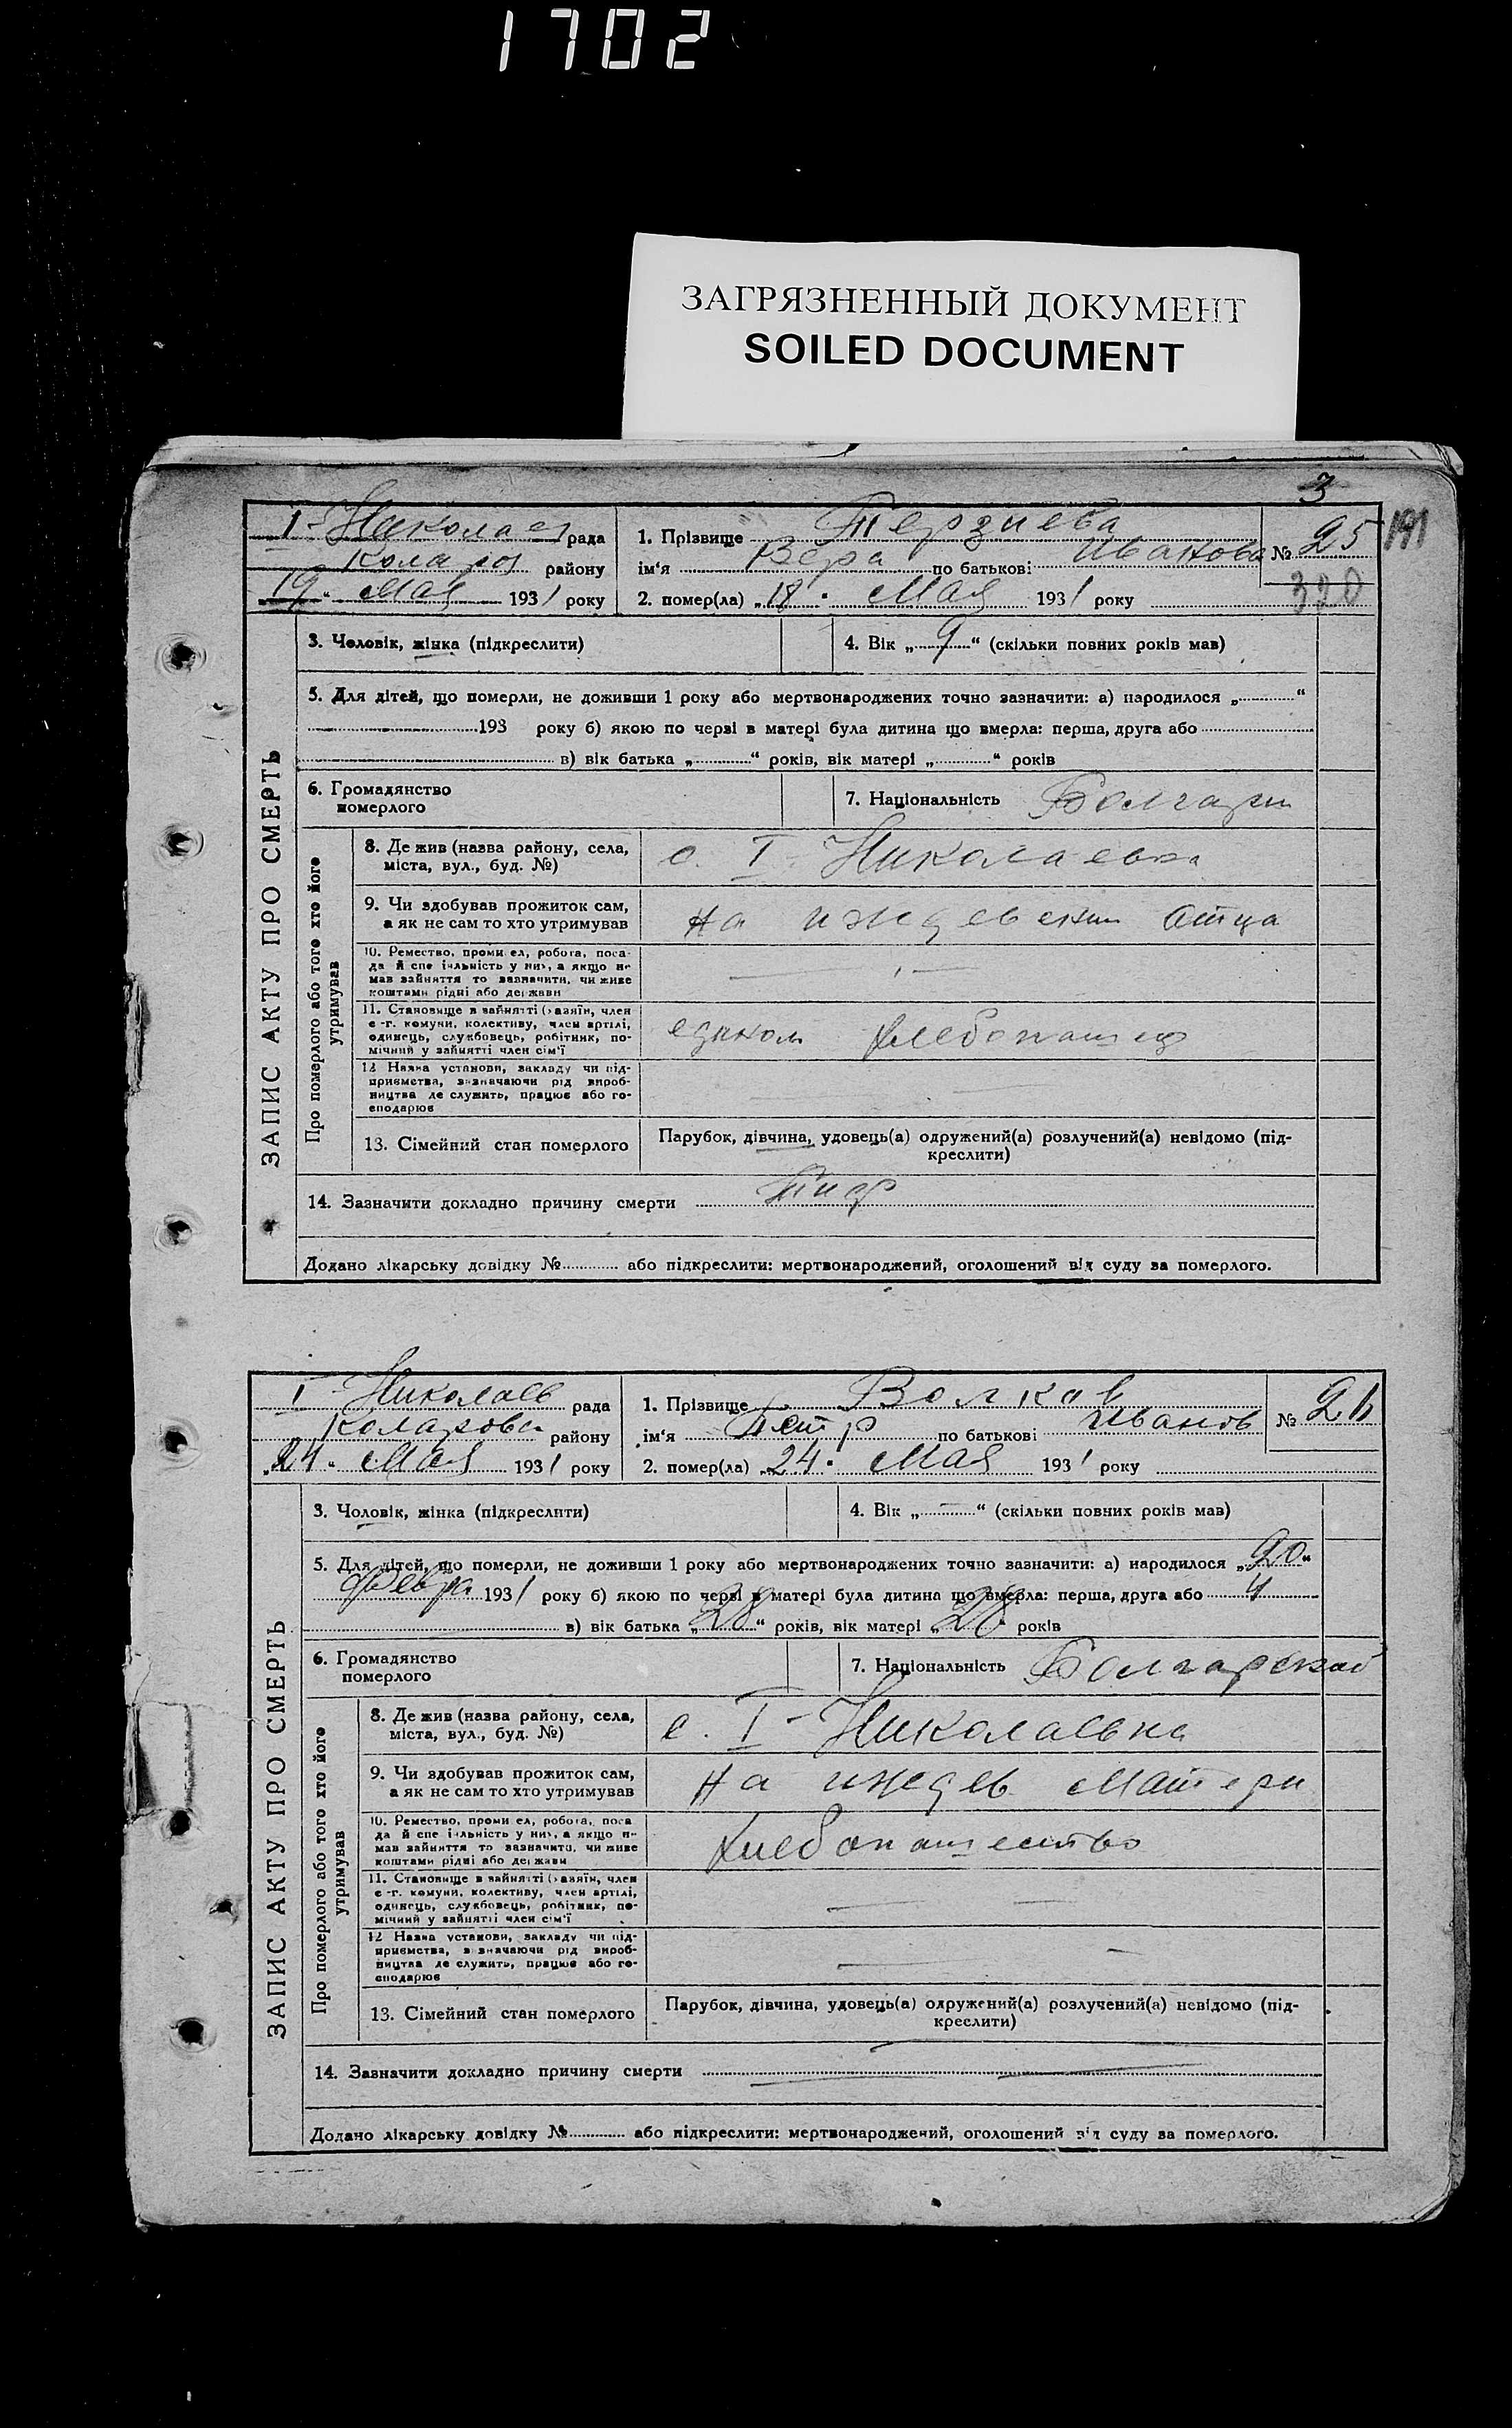 1702
ЗАГРЯЗНЕННЫЙ ДОКУМЕНТ
SOILED DOCUMENT
3
191
I-Николаев рада
Коларов району
„19“ Мая 1931 року
1. Прізвище Терзиева
ім‘я Вера по батькові Иванова
2. помер(ла) „18“ Мая 1931 року
№ 25
320
ЗАПИС АКТУ ПРО СМЕРТЬ
3. Чоловік, жінка (підкреслити)
4. Вік „9“ (скільки повних років мав)
5. Для дітей, що померли, не доживши 1 року або мертвонароджених точно зазначити: а) народилося „ “
193 року б) якою по черзі в матері була дитина що вмерла: перша, друга або
в) вік батька „ “ років, вік матері „ “ років
6. Громадянство
померлого
7. Національність Болгары
Про померлого або того хто його
утримував
8. Де жив (назва району, села,
міста, вул., буд. №)
с. I-Николаевка
9. Чи здобував прожиток сам,
а як не сам то хто утримував
на иждевении отца
10. Ремество, промисел, робота, поса-
да й спеціяльність у них, а якщо не
мав зайняття то зазначити, чи живе
коштами рідні або держави
11. Становище в зайнятті (хазяїн, член
с.-г. комуни, колективу, член артілі,
одинець, службовець, робітник, по-
мічний у зайнятті член сім‘ї
единол хлебопашец
12 Назва установи, закладу чи під-
приємства, зазначаючи рід вироб-
ництва де служить, працює або го-
сподарює
13. Сімейний стан померлого
Парубок, дівчина, удовець(а) одружений(а) розлучений(а) невідомо (під-
креслити)
14. Зазначити докладно причину смерти Тиф
Додано лікарську довідку № або підкреслити: мертвонароджений, оголошений від суду за померлого.
I-Николаев рада
Коларовск району
„24“ Мая 1931 року
1. Прізвище Волков
ім‘я Петр по батькові Иванов
2. помер(ла) „24“ Мая 1931 року
№ 26
ЗАПИС АКТУ ПРО СМЕРТЬ
3. Чоловік, жінка (підкреслити)
4. Вік „—“ (скільки повних років мав)
5. Для дітей, що померли, не доживши 1 року або мертвонароджених точно зазначити: а) народилося „20“
Февра 1931 року б) якою по черзі в матері була дитина що вмерла: перша, друга або 4
в) вік батька „28“ років, вік матері „28“ років
6. Громадянство
померлого
7. Національність Болгарской
Про померлого або того хто його
утримував
8. Де жив (назва району, села,
міста, вул., буд. №)
с. I-Николаевка
9. Чи здобував прожиток сам,
а як не сам то хто утримував
на иждев матери
10. Ремество, промисел, робота, поса-
да й спеціяльність у них, а якщо не
мав зайняття то зазначити, чи живе
коштами рідні або держави
хлебопашество
11. Становище в зайнятті (хазяїн, член
с.-г. комуни, колективу, член артілі,
одинець, службовець, робітник, по-
мічний у зайнятті член сім‘ї
12 Назва установи, закладу чи під-
приємства, зазначаючи рід вироб-
ництва де служить, працює або го-
сподарює
13. Сімейний стан померлого
Парубок, дівчина, удовець(а) одружений(а) розлучений(а) невідомо (під-
креслити)
14. Зазначити докладно причину смерти
Додано лікарську довідку № або підкреслити: мертвонароджений, оголошений від суду за померлого.